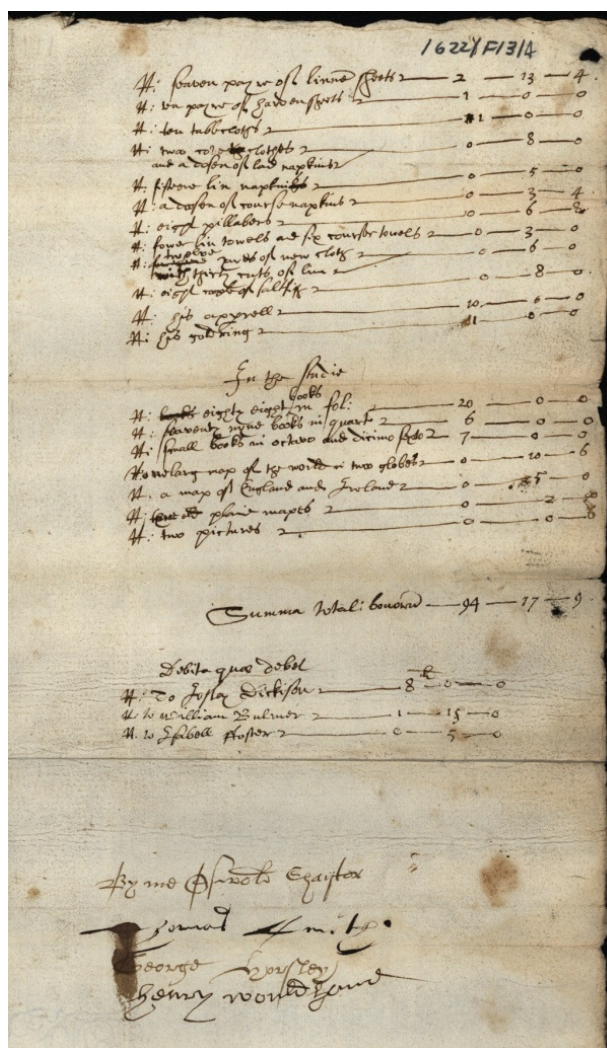 1622/F13/4
It: seaven payre of linne sheets 2 — 13 — 4
It: payre of harden sheets 1 — 0 — 0
It: ten tabbcloths 1 — 0 — 0
It: two clothes 0 — 8 — 0
and a dosen of napkins
It: fifteene lin napkins 0 — 5 — 0
It: a dosen of course napkins 0 — 3 — 4
It: eight pillabers 0 — 6 —
It: fower lin towels and six courser towels 0 — 3 — 0
It: twelve yards of new cloth 0 — 6 — 0
with thirty cuts of line
It: eight of saltfish 0 — 8 — 0
It: his apparell 10 — 0 — 0
It: his gold ring 1 — 0 — 0
In the studie
It: eighty eight books in fol: 20 — 0 — 0
It: seaventy nyne books in quarto 6 — 0 — 0
It: small books in octavo and dicimo sexto 7 — 0 — 0
It: one larg map of the world & two globes 0 — 10 — 6
It: a map of England and Ireland 0 — 5 — 0
It: plaine mapes 0 — 2 — 8
It: two pictures 0 — 0 — 8
Summa total: bonorum — 94 — 17 — 9
Debita quae debet
It: To Dickison 8 — 0 — 0
It: to William Bulmer 1 — 15 — 0
It: to Isabell ffoster 0 — 5 — 0
By me Oswold Chaytor
Thomas Smith
George Horsley
henry